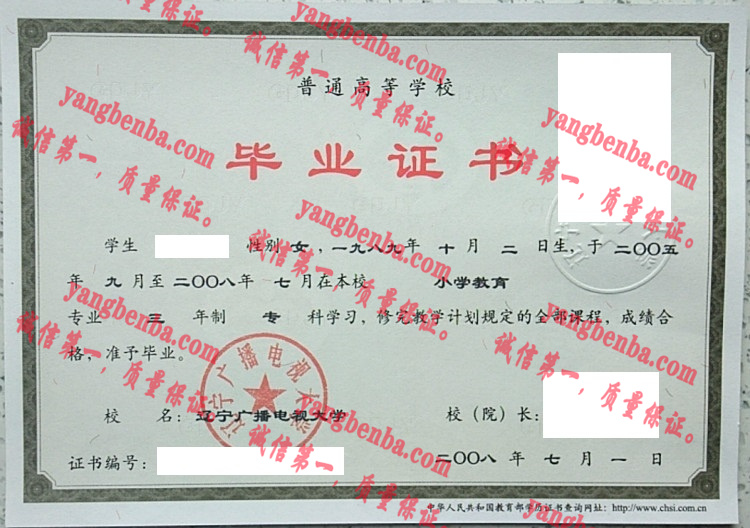 普通高等学校
毕业证书
学生 性别 女 ,一九八九年 十 月 二 日生,于 二〇〇五
年 九 月至 二〇〇八年 七 月在本校 小学教育
专业 三 年制 专 科学习,修完教学计划规定的全部课程,成绩合
格,准予毕业。
校 名: 辽宁广播电视大学 校(院)长:
证书编号: 二〇〇八 年 七 月 一 日
中华人民共和国教育部学历证书查询网址: http://www.chsi.com.cn
辽宁广播电视大学
yangbenba.com
诚信第一,质量保证。
yangbenba.com
诚信第一,质量保证。
yangbenba.com
诚信第一,质量保证。
yangbenba.com
诚信第一,质量保证。
yangbenba.com
诚信第一,质量保证。
yangbenba.com
诚信第一,质量保证。
yangbenba.com
诚信第一,质量保证。
yangbenba.com
诚信第一,质量保证。